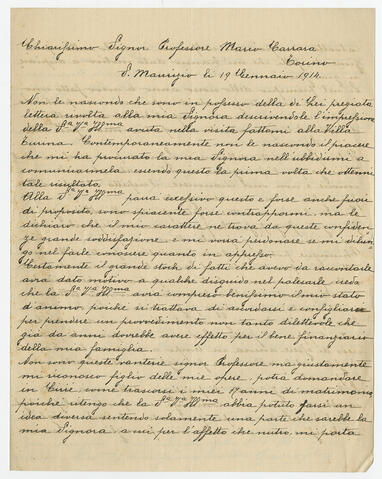 Chiarissimo Signor Professore Mario Carrara
Torino
S. Maurizio li 19 Gennaio 1914.
Non le nascondo che sono in possesso della di Lei pregiata
lettera rivolta alla mia Signora descrivendole l'impressione
della S.a V.a Ill.ma avuta nella visita fattomi alla Villa
Turina. Contemporaneamente non le nascondo il piacere
che mi ha procurato la mia Signora nell'ubbidirmi a
comunicarmela essendo questa la prima volta che otteni
tale risultato.
Alla S.a V.a Ill.ma parrà eccessivo questo e forse anche fuori
di proposito, sono spiacente forse contrappormi, ma le
dichiaro che il mio carattere ne trova da queste confiden-
ze grande soddisfazione e mi vorrà perdonare se mi dilun-
go nel farle conoscere quanto in appresso.
Certamente il grande stock di fatti che avevo da raccontarle
avrà dato motivo a qualche disguido nel palesarle credo
che la S.a V.a Ill.ma avrà compreso benissimo il mio stato
d'animo, poichè si trattava di accordarsi e consigliarsi
per prendere un provvedimento non tanto dilettevole che
già da anni dovrebbe avere effetto per il bene finanziario
della mia famiglia.
Non sono queste vanterie signor Professore ma giustamente
mi riconosco figlio delle mie opre potrà domandare
in Cuse come trascorse i miei anni di matrimonio,
poichè ritengo che la S.a V.a Ill.ma abbia potuto farsi un
idea diversa sentendo solamente una parte che sarebbe la
mia Signora a cui per l'affetto che nutro mi porta